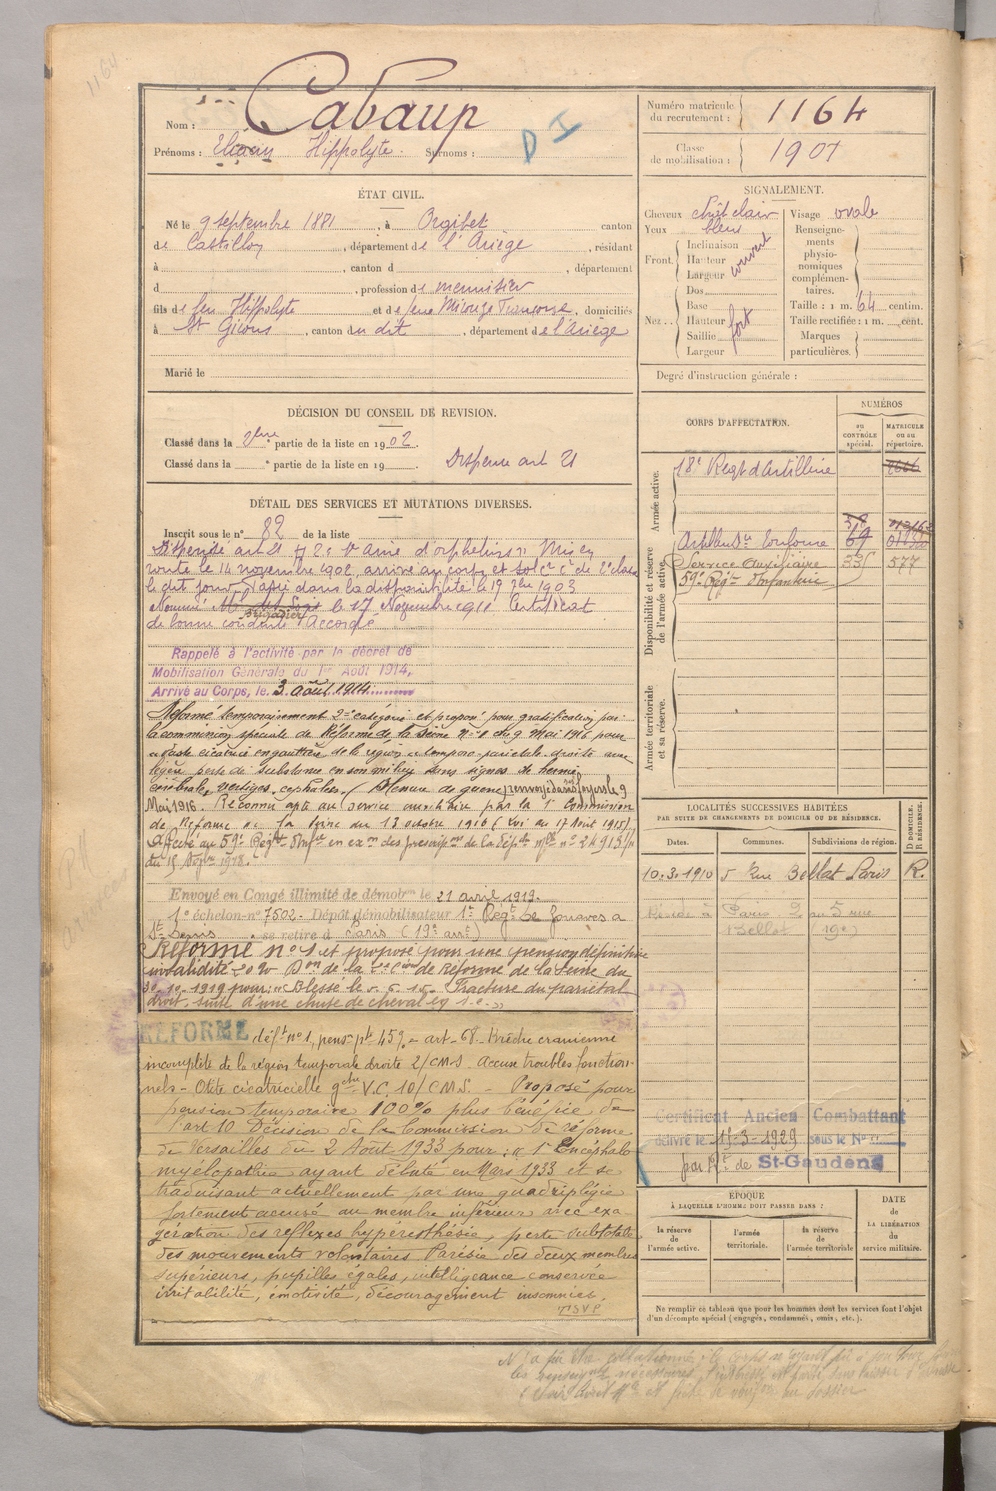 1164
Nom : Cabaup
Prénoms : Hippolyte. Surnoms :
D I
Numéro matricule du recrutement : 1164
Classe de mobilisation : 1901
ÉTAT CIVIL.
Né le 9 septembre 1881, à Orgibet canton
de Castillon, département de l'Ariège, résidant
à , canton d , département
d , profession de menuisier
fils de feu Hippolyte et de feue Mirouze Françoise, domiciliés
à St Girons, canton du dit, département de l'Ariège
Marié le
SIGNALEMENT.
Cheveux chât clair
Yeux bleus
Front. Inclinaison
Hauteur couvert
Largeur
Nez . . Dos
Base
Hauteur fort
Saillie
Largeur
Visage ovale
Renseignements physionomiques complémentaires.
Taille : 1 m. 64 centim.
Taille rectifiée : 1 m. cent.
Marques particulières.
Degré d'instruction générale :
DÉCISION DU CONSEIL DE REVISION.
Classé dans la 2ème partie de la liste en 1902.
Classé dans la partie de la liste en 19 Dispensé art 21
CORPS D'AFFECTATION.
NUMÉROS
au CONTRÔLE spécial.
MATRICULE ou au répertoire.
Armée active.
18e Régt d'Artillerie
Disponibilité et réserve de l'armée active.
Artillerie Toulouse 69
Service Auxiliaire 331 577
59e Régt d'Infanterie
Armée territoriale et sa réserve.
DÉTAIL DES SERVICES ET MUTATIONS DIVERSES.
Inscrit sous le no 82 de la liste
Dispensé art 21 aîné d'orphelins Mis en
route le 14 novembre 1902, arrivé au corps et sol. 2e cl de 2e classe
le dit jour. Passé dans la disponibilité le 19 7bre 1903
Nommé Mal des Logis brigadier le 17 Novembre 1911 Certificat
de bonne conduite Accordé
Rappelé à l'activité par le décret de
Mobilisation Générale du 1er Août 1914,
Arrivé au Corps, le 3 août 1914
Réformé temporairement 2e catégorie et proposé pour gratification par
la commission spéciale de Réforme de la Seine du 9 Mai 1916 pour
vaste cicatrice en gouttière de la région temporo-pariétale droite avec
légère perte de substance en son milieu sans signes de hernie
cérébrale, vertiges, céphalées. renvoyé dans ses foyers le 9
Mai 1916. Reconnu apte au service auxiliaire par la 1e Commission
de Réforme de la Seine du 13 octobre 1916 (Loi du 17 Août 1915)
Affecté au 59e Régt d'Infie en ex on des prescriptions de la dépêche mlle no 24913
du 15 1918.
Envoyé en Congé illimité de démobon le 21 avril 1919.
1e échelon no 7502. Dépôt démobilisateur 1er Régt de Zouaves a
St Denis se retire à Paris (19e arrt)
Réformé no 1 et proposé pour une pension définitive
invalidité 20 % Don de la Com de Réforme de la Seine du
30.10.1919 pour : « Blessé le Fracture du pariétal
droit, suite d'une chute de cheval
RÉFORME déft no 1, pensn pte 45% art. 68. Brèche cranienne
incomplète de la région temporale droite 2/CMS. Accuse troubles fonction-
nels - Otite cicatricielle gche V.C. 10/CMS. - Proposé pour
pension temporaire 100% plus bénéfice de
l'art 10 Décision de la Commission de réforme
de Versailles du 2 Août 1933 pour : « 1° Encéphalo
myélopathie ayant débuté en Mars 1933 et se
traduisant actuellement par une quadriplégie
fortement accusé au membre inférieur avec exa
gération des reflexes hyperesthésie, perte subtotale
des mouvements volontaires Parésie des deux membres
supérieurs, pupilles égales, intelligence conservée
irritabilité, émotivité, découragement insomnies.
TSVP
LOCALITÉS SUCCESSIVES HABITÉES
PAR SUITE DE CHANGEMENTS DE DOMICILE OU DE RÉSIDENCE.
Dates. Communes. Subdivisions de région. D DOMICILE. R RÉSIDENCE.
10.3.1910 5 Rue Bellot Paris R.
Réside à Paris 5 rue
Bellot (19e)
Certificat Ancien Combattant
délivré le 15-3-1929 sous le No
par de St-Gaudens
ÉPOQUE
À LAQUELLE L'HOMME DOIT PASSER DANS :
la réserve de l'armée active.
l'armée territoriale.
la réserve de l'armée territoriale
DATE de LA LIBÉRATION du service militaire.
Ne remplir ce tableau que pour les hommes dont les services font l'objet
d'un décompte spécial (engagés, condamnés, omis, etc.).